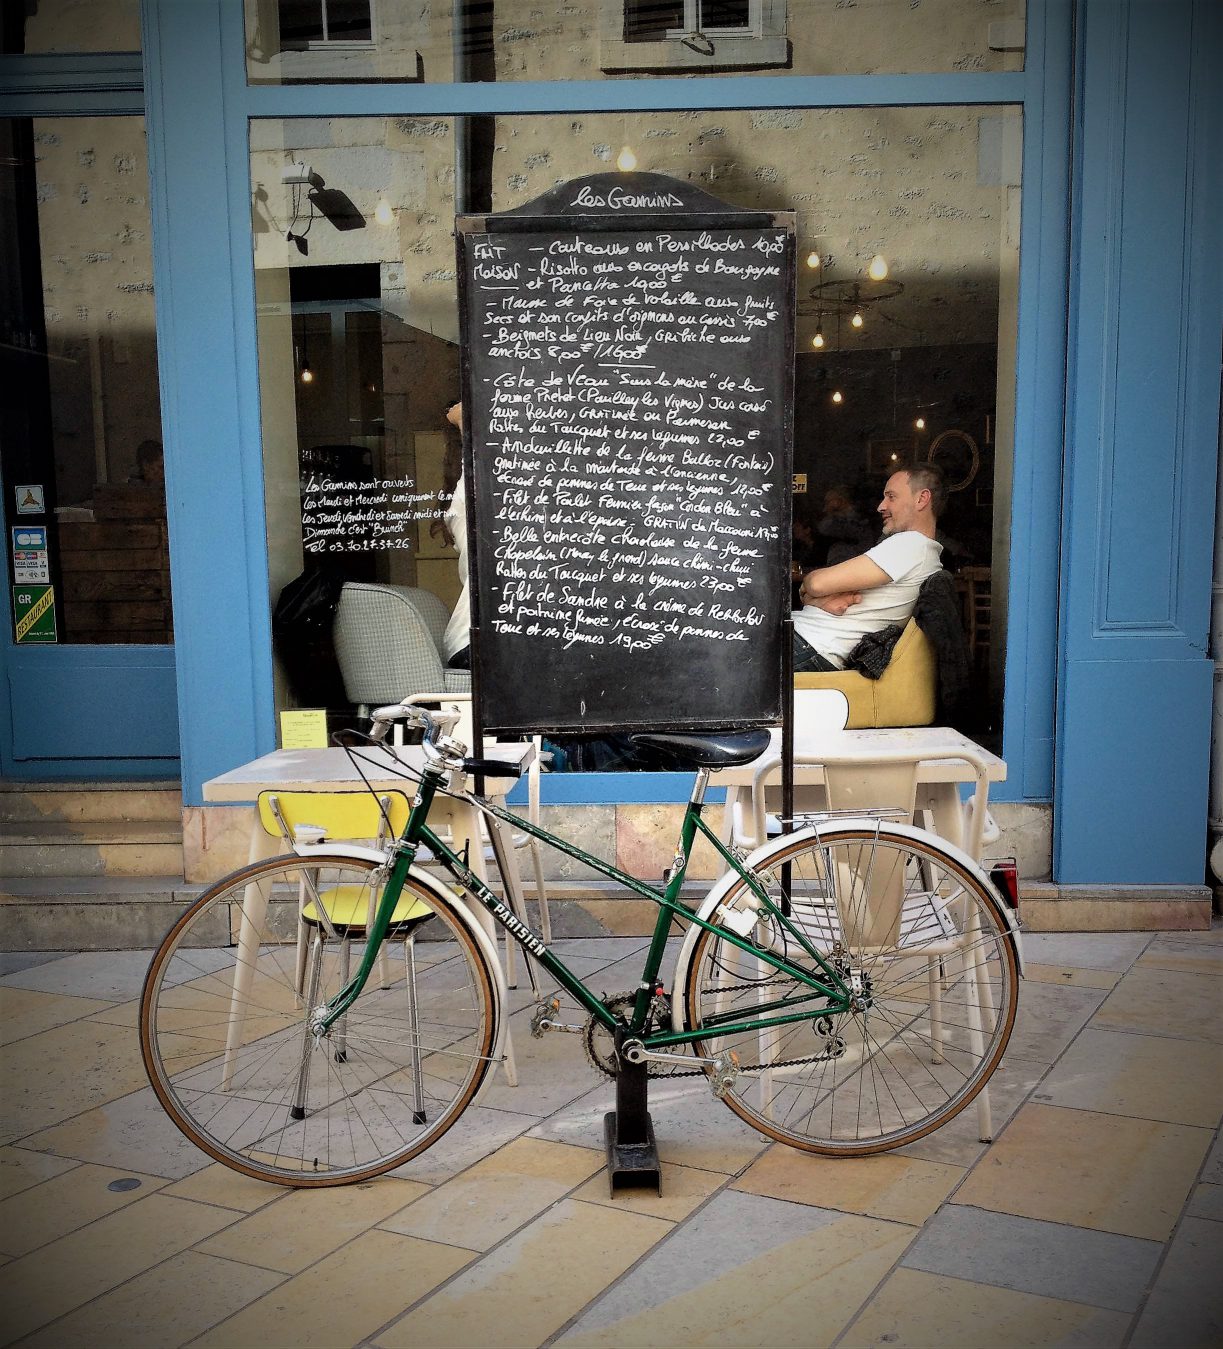 Les Gamins
FAIT - Couteaux en Persillades 10,00€
MAISON - Risotto aux escargots de Bourgogne
et Pancetta 19,00€
- Mousse de Foie de Volaille aux fruits
Secs et son confits d'oignons au Cassis 7,00€
- Beignets de Lieu Noir, Gribiche aux
anchois 8,00€ / 16,00€
- Côte de Veau "Sous la mère" de la
ferme Pretot (Pouilley les Vignes) Jus corsé
aux herbes, GRATINÉE au Parmesan
Rattes du Touquet et ses légumes 22,00€
- Andouillette de la ferme Balloz (Fontain)
gratinée à la moutarde à l'ancienne,
écrasé de pommes de Terre et ses légumes
- Filet de Poulet Fermier façon "Cordon Bleu" à
GRATIN de Maccaroni
- Belle entrecôte Charolaise de la ferme
Chapelain (Mney le grand) sauce chimi-churri
Rattes du Touquet et ses légumes 23,00€
- Filet de Sandre à la crème de
et poitrine fumée, écrasé de pommes de
Terre et ses légumes 19,00€
Les Gamins sont ouverts
Les Mardi et Mercredi uniquement le
Les Jeudi, Vendredi et Samedi midi et
Dimanche c'est "Brunch"
Tel 03.70.27.37.26
CB
VISA
GR
RESTAURANT
OFF
LE PARISIEN